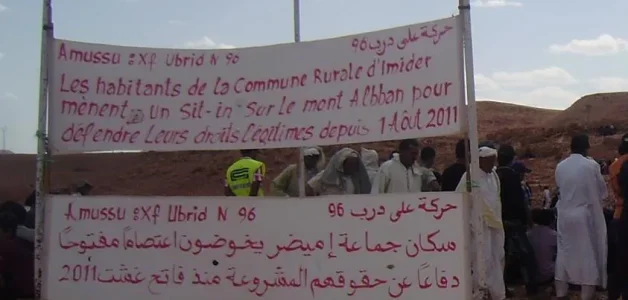 Amussu : Xf Ubrid N 96 حركة على درب 96
Les habitants de la Commune Rurale d'Imider
mènent un Sit-in Sur le mont Albban pour
défendre Leurs droits légitimes depuis 1 Août 2011
Amussu : Xf Ubrid N 96 حركة على درب 96
سكان جماعة إميضر يخوضون اعتصاماً مفتوحاً
دفاعاً عن حقوقهم المشروعة منذ فاتح غشت 2011